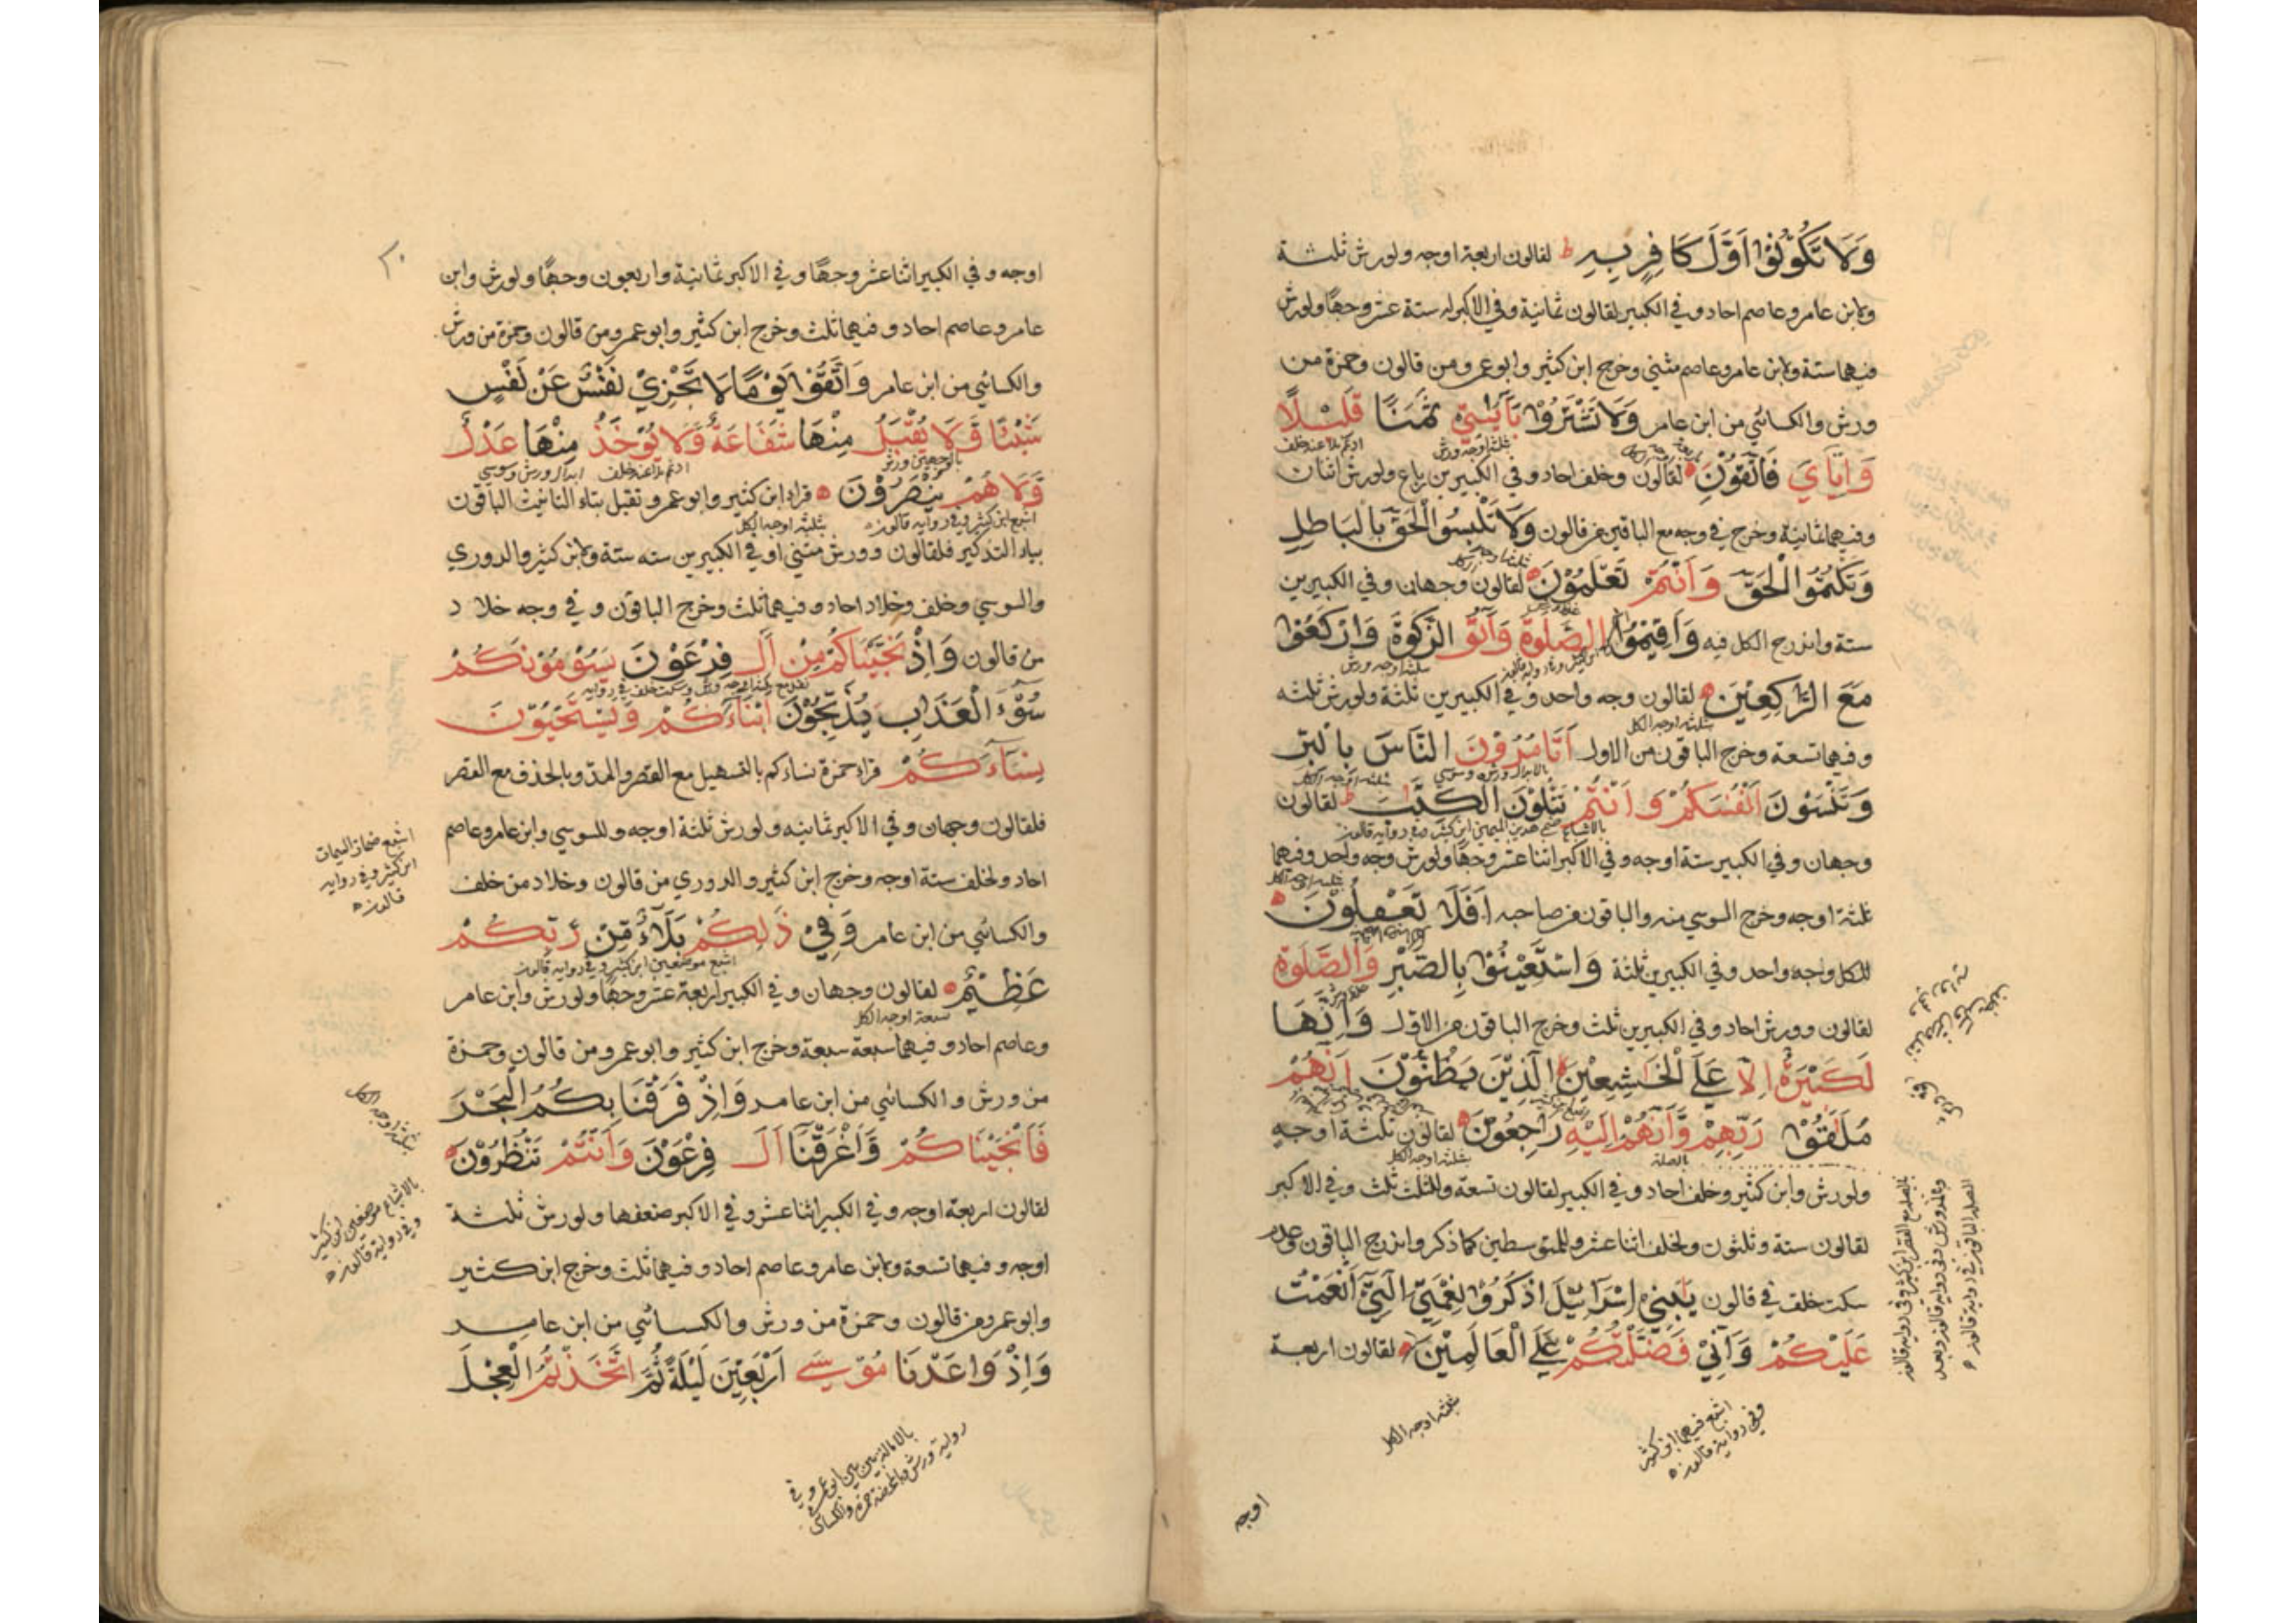 وَلَا تَكُونُوا أَوَّلَ كَافِرٍ بِهِ ط لقالون اربعة اوجه ولورش ثلثة
ولابن عامر وعاصم احاد وفي الكبير لقالون ثمانية وفي الاكبر له ستة عشر وجهًا ولورش
فيهما ستة ولابن عامر وعاصم مثني وخرج ابن كثير وابو عمرو من قالون وحمزة من
ورش والكسائي من ابن عامر وَلَا تَشْتَرُوا بِآيٰتِي ثَمَنًا قَلِيْلًا
ثلثة اوجه ورش ادغم بلا عند خلف
وَاِيَّايَ فَاتَّقُوْنِ لقالون وخلف احاد وفي الكبيرين رباع ولورش اثنان
وفيهما ثمانية وخرج في وجه مع الباقين من قالون وَلَا تَلْبِسُوا الْحَقَّ بِالْبَاطِلِ
وَتَكْتُمُوا الْحَقَّ وَاَنْتُمْ تَعْلَمُوْنَ لقالون وجهان وفي الكبيرين
ستة واندرج الكل فيه وَاَقِيْمُوا الصَّلٰوةَ وَآتُوا الزَّكٰوةَ وَارْكَعُوْا
ثلثة اوجه ورش
مَعَ الرَّاكِعِيْنَ لقالون وجه واحد وفي الكبيرين ثلثة ولورش ثلثه
ثلثه اوجه الكل
وفيهما تسعة وخرج الباقون من الاول اَتَأْمُرُوْنَ النَّاسَ بِالْبِرِّ
بالابدال ورش وسوسي
وَتَنْسَوْنَ اَنْفُسَكُمْ وَاَنْتُمْ تَتْلُوْنَ الْكِتٰبَ ط لقالون
وجهان وفي الكبير ستة اوجه وفي الاكبر اثنا عشر وجهًا ولورش وجه واحد وفيهما
ثلثه اوجه الكل
ثلثة اوجه وخرج السوسي منه والباقون من صاحبه اَفَلَا تَعْقِلُوْنَ
للكل وجه واحد وفي الكبيرين ثلثة وَاسْتَعِيْنُوْا بِالصَّبْرِ وَالصَّلٰوةِ
لقالون وورش احاد وفي الكبيرين ثلث وخرج الباقون من الاول وَاِنَّهَا
لَكَبِيْرَةٌ اِلَّا عَلَى الْخٰشِعِيْنَ الَّذِيْنَ يَظُنُّوْنَ اَنَّهُمْ
مُلٰقُوْا رَبِّهِمْ وَاَنَّهُمْ اِلَيْهِ رَاجِعُوْنَ لقالون ثلثة اوجه
بالصلة ثلثه اوجه الكل
ولورش وابن كثير وخلف احاد وفي الكبير لقالون تسعة وللثلث ثلث وفي الاكبر
لقالون ستة وثلثون ولخلف اثنا عشر وللمتوسطين كما ذكر واندرج الباقون وعدم
سكت خلف في قالون يٰبَنِيْ اِسْرَآئِيْلَ اذْكُرُوْا نِعْمَتِيَ الَّتِيْ اَنْعَمْتُ
عَلَيْكُمْ وَاَنِّيْ فَضَّلْتُكُمْ عَلَى الْعَالَمِيْنَ لقالون اربعة
ثلثه اوجه الكل
اشبع فيهما ابن كثير
وفي رواية قالون
اوجه
٢٠
اوجه وفي الكبير اثنا عشر وجهًا وفي الاكبر ثمانية واربعون وجهًا ولورش وابن
عامر وعاصم احاد وفيهما ثلث وخرج ابن كثير وابو عمرو من قالون وحمزة من ورش
والكسائي من ابن عامر وَاتَّقُوْا يَوْمًا لَا تَجْزِيْ نَفْسٌ عَنْ نَفْسٍ
شَيْئًا وَلَا يُقْبَلُ مِنْهَا شَفَاعَةٌ وَلَا يُؤْخَذُ مِنْهَا عَدْلٌ
بالوجهين ورش ادغم بلا عند خلف ابدال ورش وسوسي
وَلَا هُمْ يُنْصَرُوْنَ قراء ابن كثير وابو عمرو تقبل بتاء التانيث الباقون
اشبع ابن كثير وفي رواية قالون ثلثه اوجه الكل
بياء التذكير فلقالون وورش مثني او في الكبيرين سته ستة ولابن كثير والدوري
والسوسي وخلف وخلاد احاد وفيهما ثلث وخرج الباقون وفي وجه خلاد
من قالون وَاِذْ نَجَّيْنَاكُمْ مِنْ اٰلِ فِرْعَوْنَ يَسُوْمُوْنَكُمْ
سُوْٓءَ الْعَذَابِ يُذَبِّحُوْنَ اَبْنَآءَكُمْ وَيَسْتَحْيُوْنَ
نِسَآءَكُمْ قراء حمزة نساءكم بالتسهيل مع القصر والمد وبالحذف مع القصر
فلقالون وجهان وفي الاكبر ثمانيه ولورش ثلثة اوجه وللسوسي وابن عامر وعاصم
احاد ولخلف ستة اوجه وخرج ابن كثير والدوري من قالون وخلاد من خلف
والكسائي من ابن عامر وَفِيْ ذٰلِكُمْ بَلَآءٌ مِنْ رَبِّكُمْ
اشبع موضعين ابن كثير وفي رواية قالون
عَظِيْمٌ لقالون وجهان وفي الكبير اربعة عشر وجهًا ولورش وابن عامر
سبعة اوجه الكل
وعاصم احاد وفيهما سبعة سبعة وخرج ابن كثير وابو عمرو من قالون وحمزة
من ورش والكسائي من ابن عامر وَاِذْ فَرَقْنَا بِكُمُ الْبَحْرَ
فَاَنْجَيْنَاكُمْ وَاَغْرَقْنَآ اٰلَ فِرْعَوْنَ وَاَنْتُمْ تَنْظُرُوْنَ
لقالون اربعة اوجه وفي الكبير اثنا عشر وفي الاكبر ضعفها ولورش ثلثة
اوجه وفيهما تسعة ولابن عامر وعاصم احاد وفيهما ثلث وخرج ابن كثير
وابو عمرو من قالون وحمزة من ورش والكسائي من ابن عامر
وَاِذْ وَاعَدْنَا مُوْسٰى اَرْبَعِيْنَ لَيْلَةً ثُمَّ اتَّخَذْتُمُ الْعِجْلَ
اشبع ضمات الميمات
ابن كثير وفي رواية
قالون
ثلثه اوجه الكل
بالاشباع موضعين ابن كثير
وفي رواية قالون